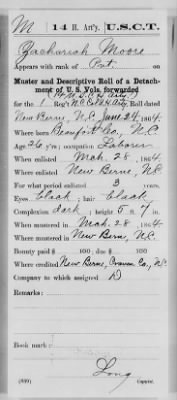 M 14 H. Art'y. U.S.C.T.
Zachariah Moore
Appears with rank of Pvt on
Muster and Descriptive Roll of a Detach-
ment of U. S. Vols. forwarded
(14 U.S.C. H. Arty)
for the 1 Reg't N.C. Cold H Arty Roll dated
New Berne, N.C. June 24, 1864.
Where born Beaufort Co., N.C.
Age 26 y'rs; occupation Laborer
When enlisted Mch. 28, 1864.
Where enlisted New Berne, N.C.
For what period enlisted 3 years.
Eyes black; hair black
Complexion dark; height 5 ft. 7 in.
When mustered in Mch. 28, 1864.
Where mustered in New Bern, N.C.
Bounty paid $ 100; due $ 100
Where credited New Berne, Craven Co., N.C.
Company to which assigned D
Remarks:
Book mark:
Long
(339) Copyist.